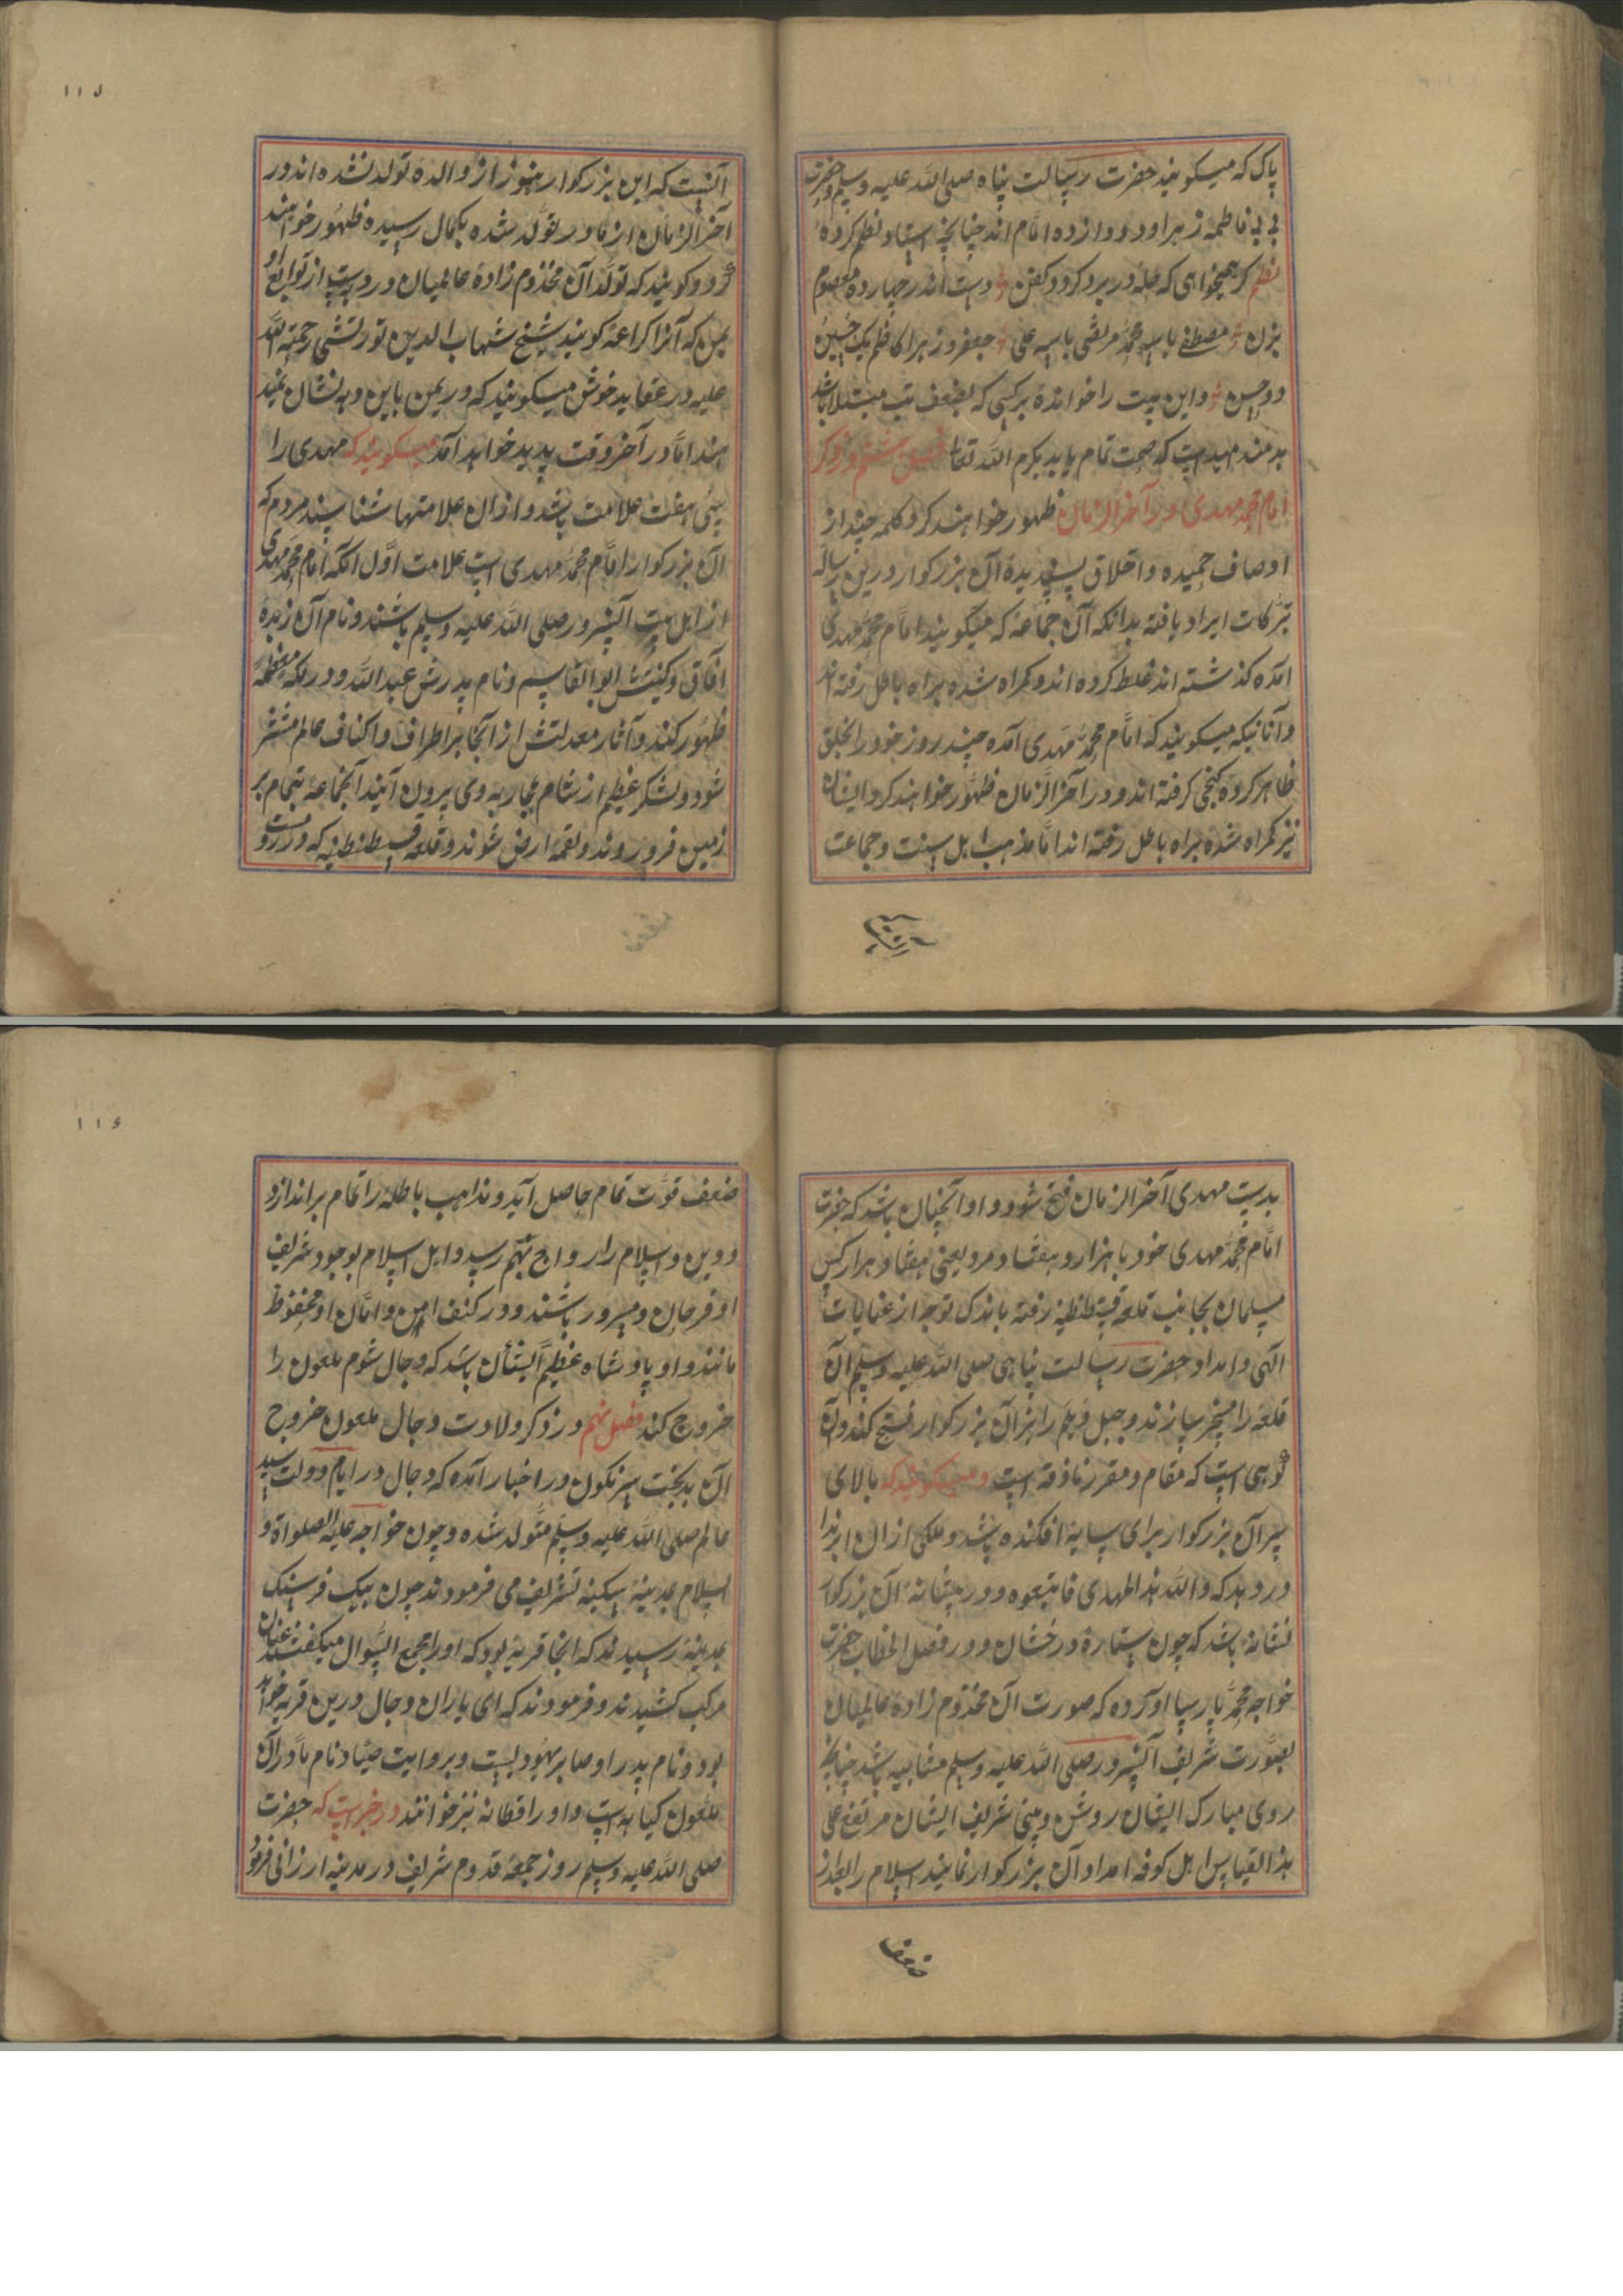 پاک که میکویند حضرت رسالت پناه صلی الله علیه وسلم وحضرت
بی بی فاطمه زهرا و دوازده امام اند چنانچه استاد نظم کرده
نظم کر همیخواهی که حله در برد کردد کفن دست اندر چهارده معصوم
بزن مصطفی باسه محمد مرتضی باسه علی جعفر و زهرا کاظم یک حسین
دو حسن و این بیت را خوانده بر کسی که بضعف تب مبتلا باشد
بدمند امید است که صحت تمام یابد بکرم الله تعالی فصل هشتم در ذکر
امام محمد مهدی در آخر الزمان ظهور خواهند کرد کلمه چند از
اوصاف حمیده و اخلاق پسندیده آن بزرکوار درین رساله
تبرکات ایراد یافته بدانکه آن جماعه که میکویند امام محمد مهدی
آمده کذشته اند غلط کرده اند و کمراه شده براه باطل رفته اند
و آنانیکه میکویند که امام محمد مهدی آمده چند روز خود را بخلق
ظاهر کرده کنجی کرفته اند و در آخر الزمان ظهور خواهند کرد ایشان
نیز کمراه شده براه باطل رفته اند اما مذهب اهل سنت و جماعت
آنست
١١٥
آنست که این بزرکوار هنوز از والده تولد نشده اند در
آخر الزمان از مادر تولد شده بکمال رسیده ظهور خواهند
کرد و کویند که تولد آن مخدوم زاده عالمیان در دهیست از توابع
یمن که آنرا کراعه کویند شیخ شهاب الدین تورپشتی رحمة الله
علیه در عقاید خوش میکویند که در یمن باین ده نشان نمیدهند
اما در آخر وقت پدید خواهد آمد میکویند که مهدی را
سی هفت علامت باشد و ازان علامتها شناسند مردم که
آن بزرکوار امام محمد مهدی است علامت اول آنکه امام محمد مهدی
از اهل بیت آنسرور صلی الله علیه وسلم باشند و نام آن زبده
آفاق و کنیتش ابو القاسم و نام پدرش عبد الله و در مکه معظمه
ظهور کنند و آثار معدلتش از آنجا بر اطراف و اکناف عالم منتشر
شود و لشکر عظیم از شام بمحاربه وی بیرون آیند آنجماعه بتمام بر
زمین فرو روند و لقمه ارض شوند و قلعه قسطنطنیه که در روم است
بدست مهدی آخر الزمان فتح شود و او آنچنان باشد که حضرت
امام محمد مهدی خود با هزار و هفتاد مرد یعنی هفتاد هزار کس
مسلمان بجانب قلعه قسطنطنیه رفته باندک توجه از عنایات
الهی و امداد حضرت رسالت پناهی صلی الله علیه وسلم آن
قلعه را مسخر سازند و جبل دیلم را نیز آن بزرکوار فتح کنند و آن
کوهی است که مقام و مقر زنادقه است و میکویند که بالای
سر آن بزرکوار برای سایه افکنده باشد و ملکی از ان ابر ندا
در دهد که والله هذا المهدی فاتبعوه و در پیشانه آن بزرکوار
نشانه باشد که چون ستاره درخشان و در فصل الخطاب حضرت
خواجه محمد پارسا آورده که صورت آن مخدوم زاده عالمیان
بصورت شریف آنسرور صلی الله علیه وسلم مشابه باشد چنانچه
روی مبارک ایشان روشن و بینی شریف ایشان مرتفع علی
هذا القیاس اهل کوفه امداد آن بزرکوار نمایند اسلام را بعد از
ضعف
١١٦
ضعف قوت تمام حاصل آید و مذاهب باطله را تمام براندازد
و دین و اسلام را رواج بهم رسد و اهل اسلام بوجود شریف
او فرحان و مسرور باشند و در کنف امن و امان او محفوظ
مانند و او پادشاه عظیم الشان باشد که دجال شوم ملعون را
خروج کند فصل نهم در ذکر ولادت دجال ملعون خروج
آن بدبخت سرنکون در اخبار آمده که دجال در ایام دولت سید
عالم صلی الله علیه وسلم متولد شده و چون خواجه علیه الصلواة و
السلام بمدینه سکینه تشریف می فرمودند چون بیک فرسنک
بمدینه رسیدند که آنجا قریه بود که او را مجمع السوال میکفتند عنان
مرکب کشیدند و فرمودند که ای یاران دجال درین قریه خواهد
بود و نام پدر او صابر یهودیست و بروایت صیاد نام مادر آن
ملعون کیا هه است و او را قطانه نیز خوانند در خبر است که حضرت
صلی الله علیه وسلم روز جمعه قدوم شریف در مدینه ارزانی فرمود